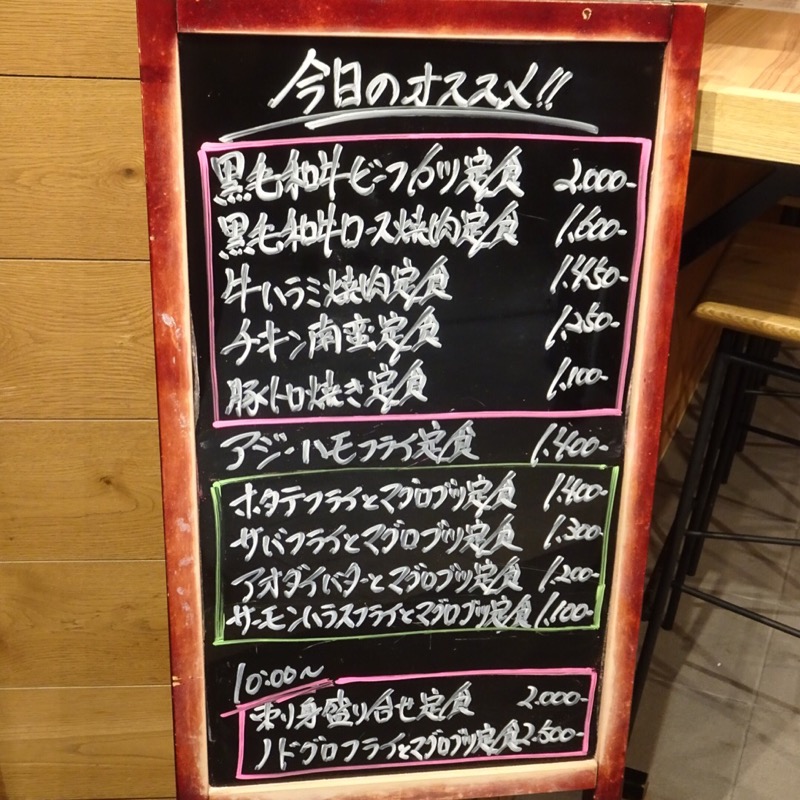 今日のオススメ!!
黒毛和牛ビーフカツ定食 2.000-
黒毛和牛ロース焼肉定食 1.600-
牛ハラミ焼肉定食 1.450-
チキン南蛮定食 1.250-
豚トロ焼き定食 1.100-
アジ・ハモフライ定食 1.400-
ホタテフライとマグロブツ定食 1.400-
サバフライとマグロブツ定食 1.300-
アオダイバターとマグロブツ定食 1.200-
サーモンハラスフライとマグロブツ定食 1.100-
10:00〜
刺り身盛り合せ定食 2.000-
ノドグロフライとマグロブツ定食 2.500-